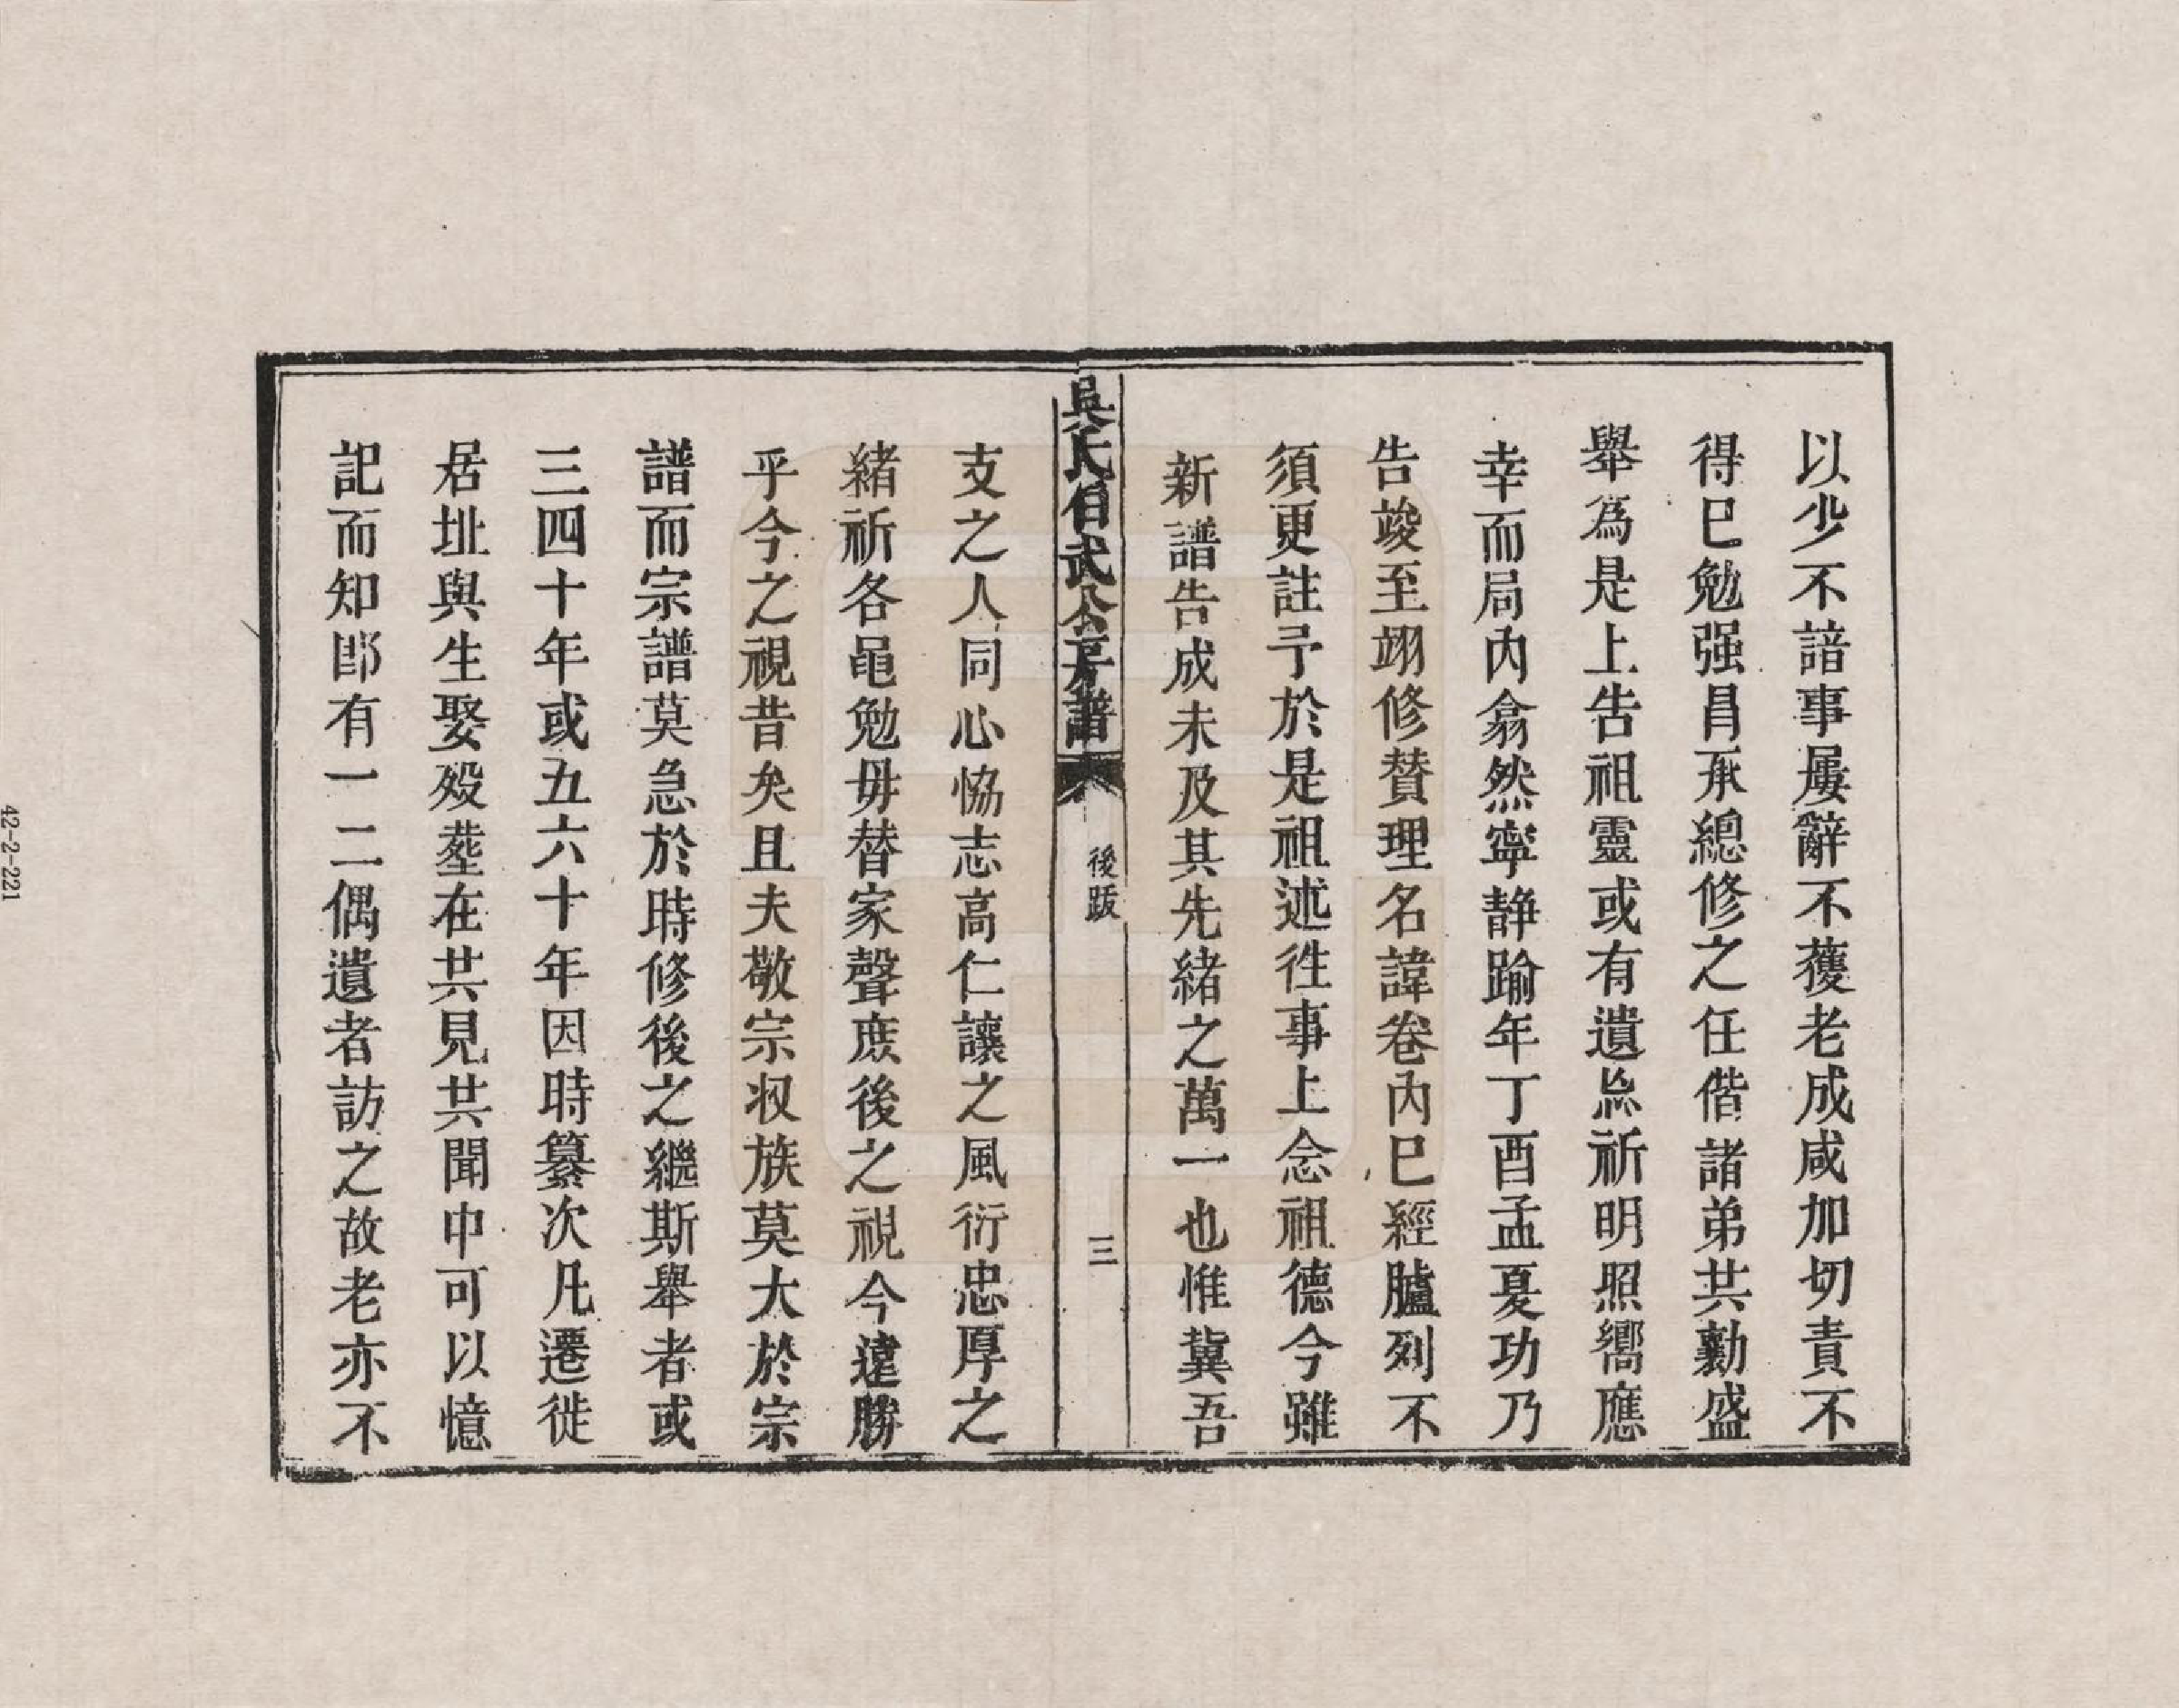 以少不諳事屢辭不獲老成咸加切責不
得已勉强肩承總修之任偕諸弟共勷盛
舉爲是上告祖靈或有遺㷀祈明照嚮應
幸而局內翕然寧靜踰年丁酉孟夏功乃
告竣至翊修贊理名諱卷內已經臚列不
須更註予於是祖述徃事上念祖德今雖
新譜告成未及其先緒之萬一也惟冀吾
吳氏伯武公房譜
後跋
三
支之人同心恊志高仁讓之風衍忠厚之
緒祈各黽勉毋替家聲庶後之視今遠勝
乎今之視昔矣且夫敬宗収族莫大於宗
譜而宗譜莫急於時修後之繼斯舉者或
三四十年或五六十年因時纂次凡遷徙
居址與生娶歿塟在共見共聞中可以憶
記而知卽有一二偶遺者訪之故老亦不
42-2-221